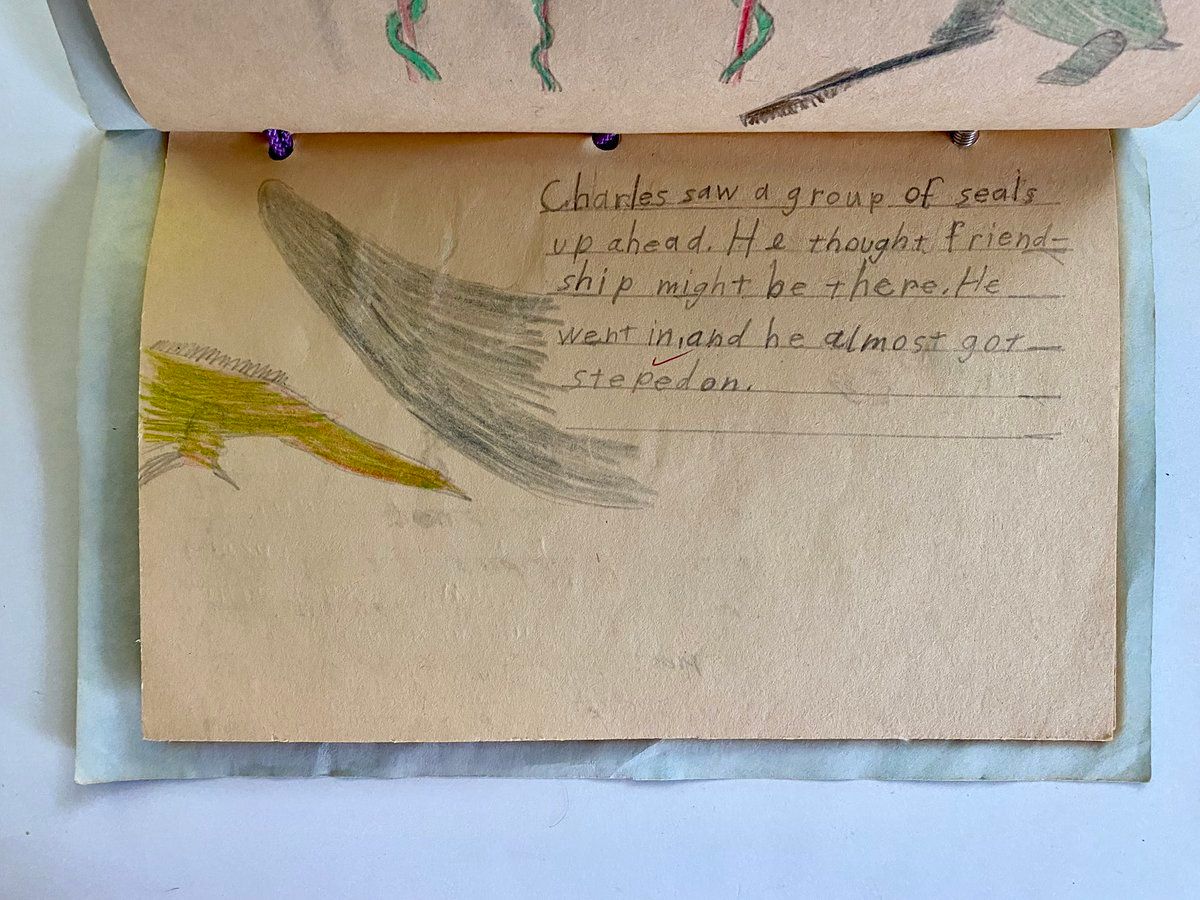 Charles saw a group of seals
up ahead. He thought friend-
ship might be there. He
went in, and he almost got
steped on.